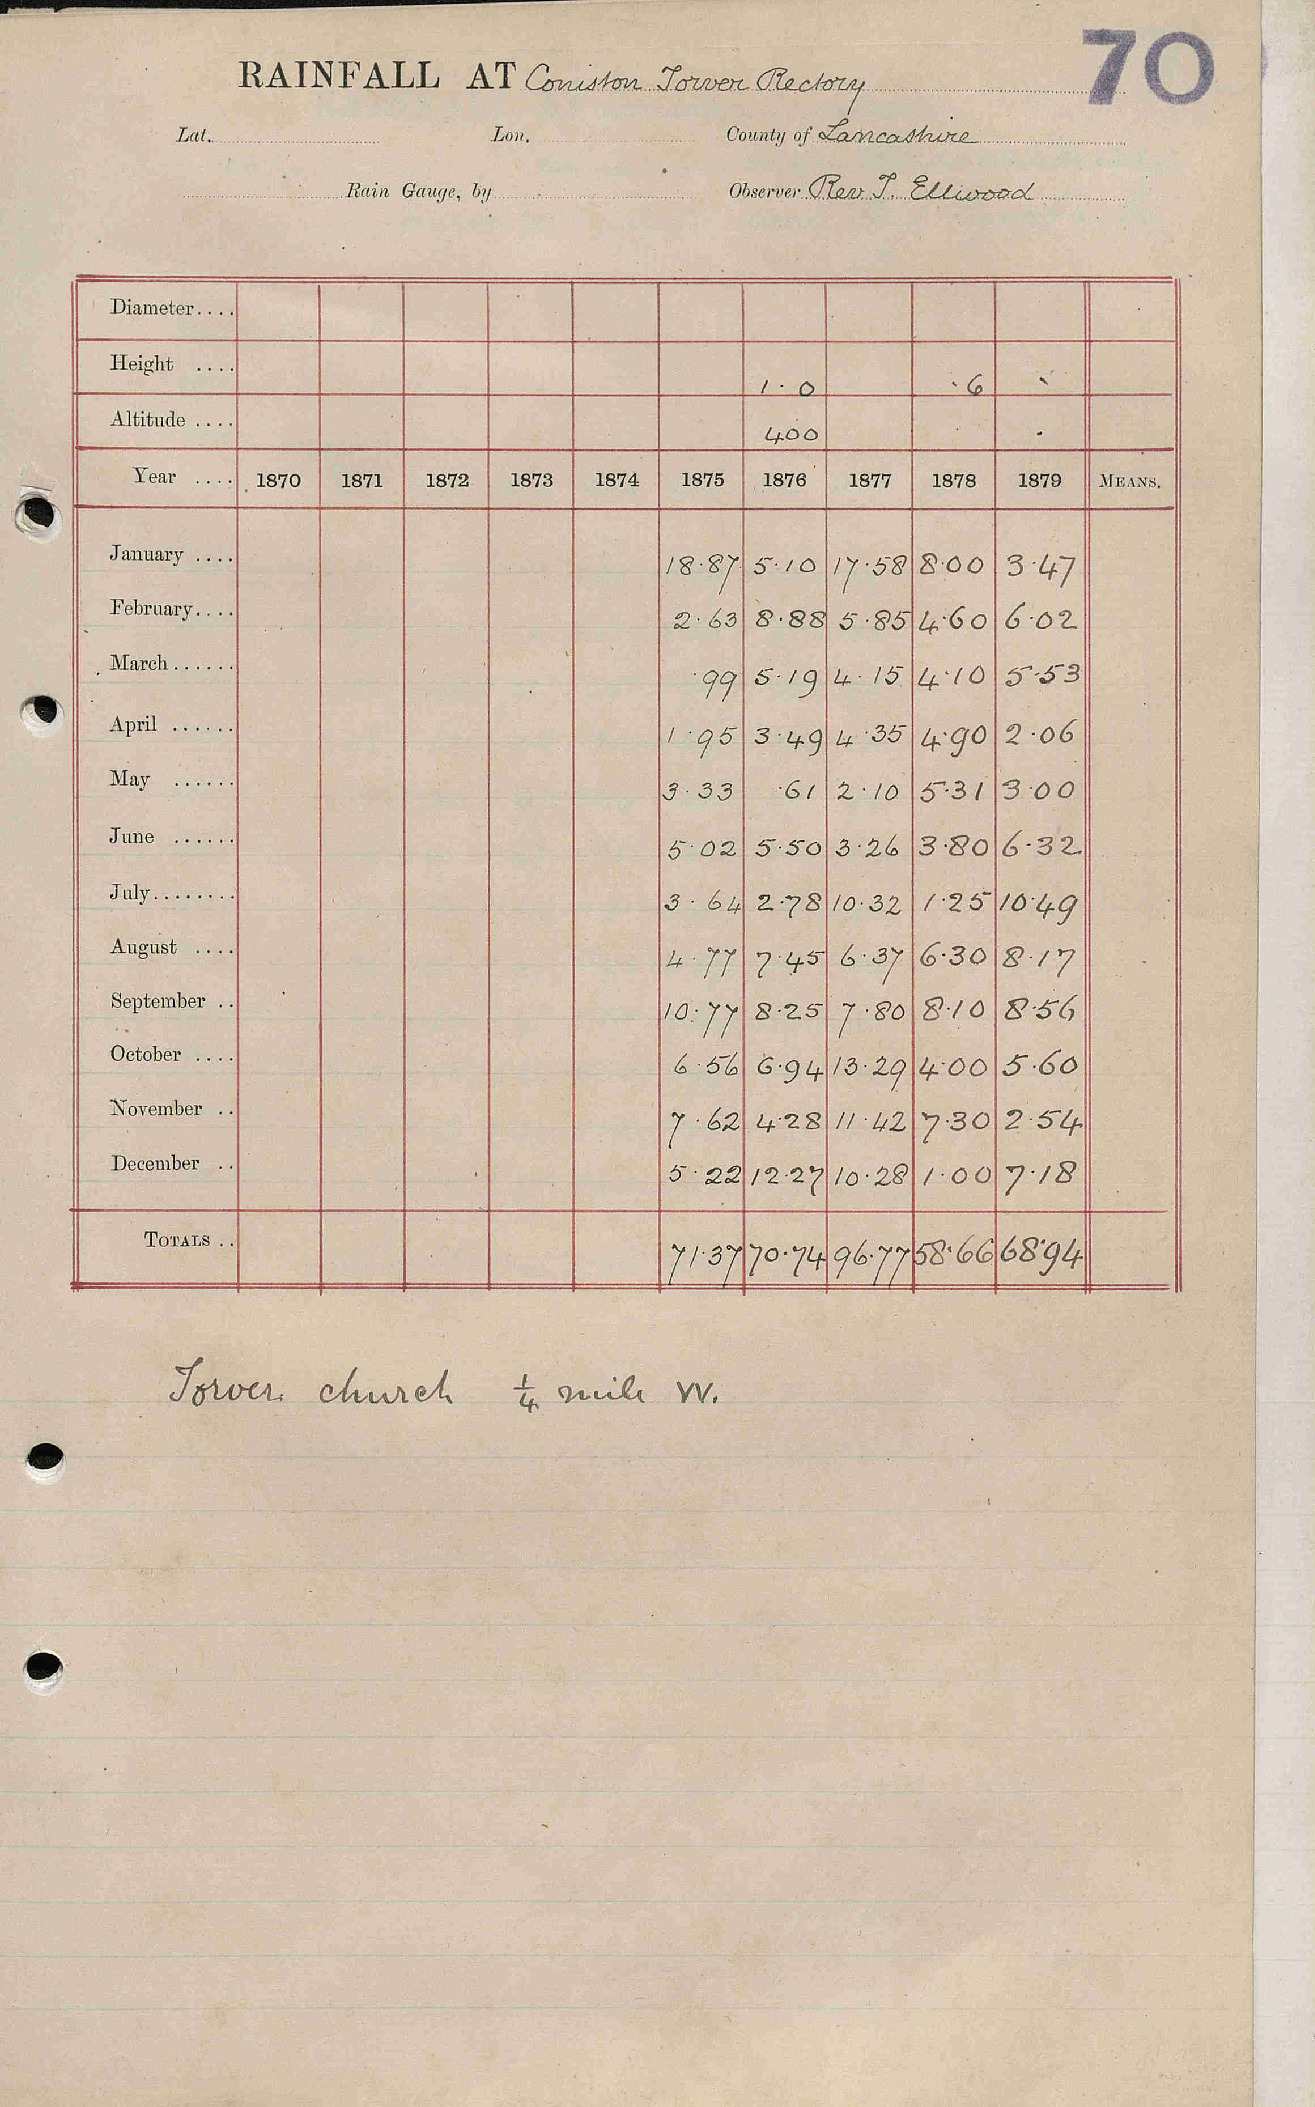 70
RAINFALL AT Coniston Torver Rectory
Lat. Lon. County of Lancashire
Rain Gauge, by Observer Rev T. Ellwood
Diameter....
Height .... 1·0 ·6
Altitude .... 400
Year .... 1870 1871 1872 1873 1874 1875 1876 1877 1878 1879 MEANS.
January .... 18·87 5·10 17·58 8·00 3·47
February.... 2·63 8·88 5·85 4·60 6·02
March...... ·99 5·19 4·15 4·10 5·53
April ...... 1·95 3·49 4·35 4·90 2·06
May ...... 3·33 ·61 2·10 5·31 3·00
June ...... 5·02 5·50 3·26 3·80 6·32
July........ 3·64 2·78 10·32 1·25 10·49
August .... 4·77 7·45 6·37 6·30 8·17
September .. 10·77 8·25 7·80 8·10 8·56
October .... 6·56 6·94 13·29 4·00 5·60
November .. 7·62 4·28 11·42 7·30 2·54
December .. 5·22 12·27 10·28 1·00 7·18
TOTALS .. 71·37 70·74 96·77 58·66 68·94
Torver church 1/4 mile W.